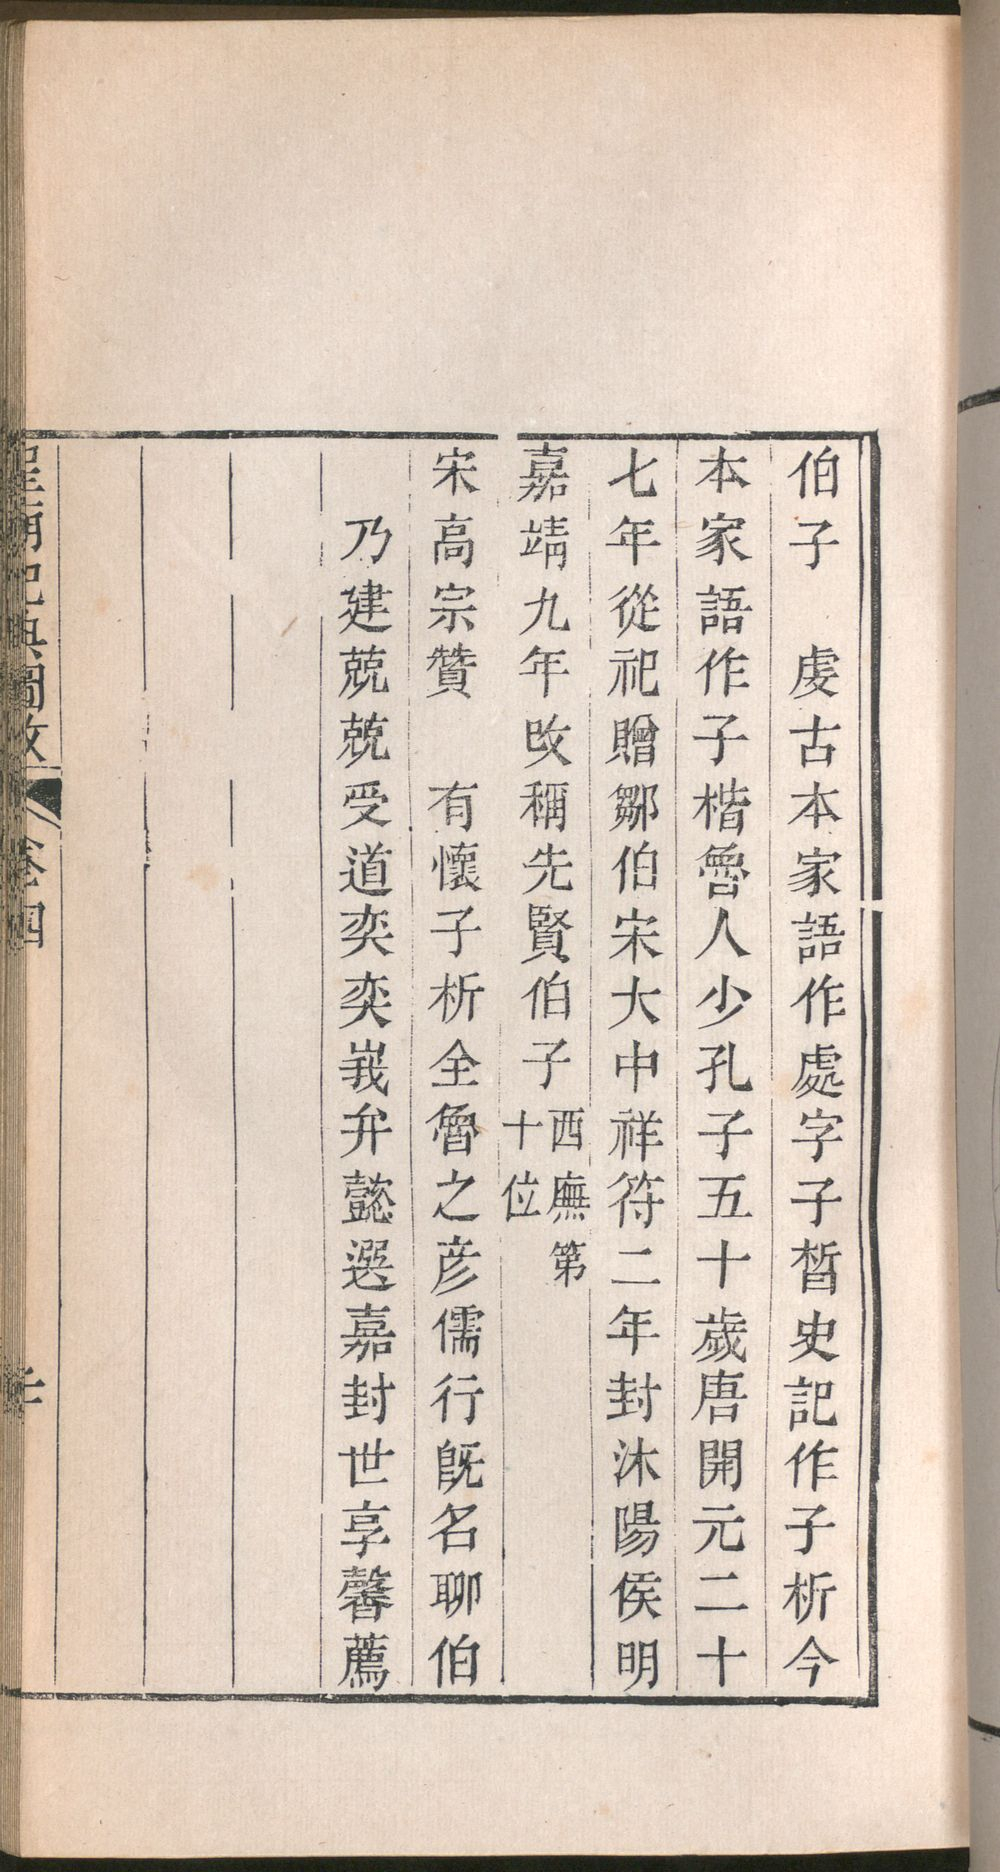 伯子　虔古本家語作處字子晳史記作子析今
本家語作子楷魯人少孔子五十歲唐開元二十
七年從祀贈鄒伯宋大中祥符二年封沐陽侯明
嘉靖九年改稱先賢伯子西廡第
十位
宋高宗贊　有懷子析全魯之彥儒行旣名聊伯
乃建兢兢受道奕奕峩弁懿選嘉封世享馨薦
聖廟祀典圖攷
卷四